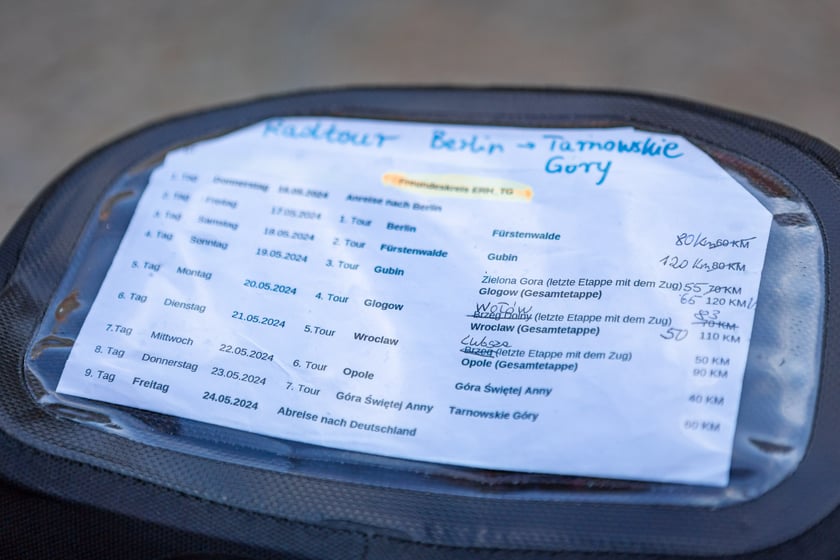 Radtour Berlin → Tarnowskie
Góry
Freundeskreis ERH_TG
1. Tag Donnerstag 16.05.2024 Anreise nach Berlin
2. Tag Freitag 17.05.2024 1. Tour Berlin Fürstenwalde 80 Km 60 KM
3. Tag Samstag 18.05.2024 2. Tour Fürstenwalde Gubin 120 Km 80 KM
4. Tag Sonntag 19.05.2024 3. Tour Gubin Zielona Gora (letzte Etappe mit dem Zug) 55 70 KM
Glogow (Gesamtetappe) 65 120 KM
5. Tag Montag 20.05.2024 4. Tour Glogow Wołów Brzeg Dolny (letzte Etappe mit dem Zug) 83 70 KM
Wroclaw (Gesamtetappe) 50 110 KM
6. Tag Dienstag 21.05.2024 5.Tour Wroclaw Lubsza Brzeg (letzte Etappe mit dem Zug) 50 KM
Opole (Gesamtetappe) 90 KM
7.Tag Mittwoch 22.05.2024 6. Tour Opole Góra Świętej Anny 40 KM
8. Tag Donnerstag 23.05.2024 7. Tour Góra Świętej Anny Tarnowskie Góry 60 KM
9. Tag Freitag 24.05.2024 Abreise nach Deutschland